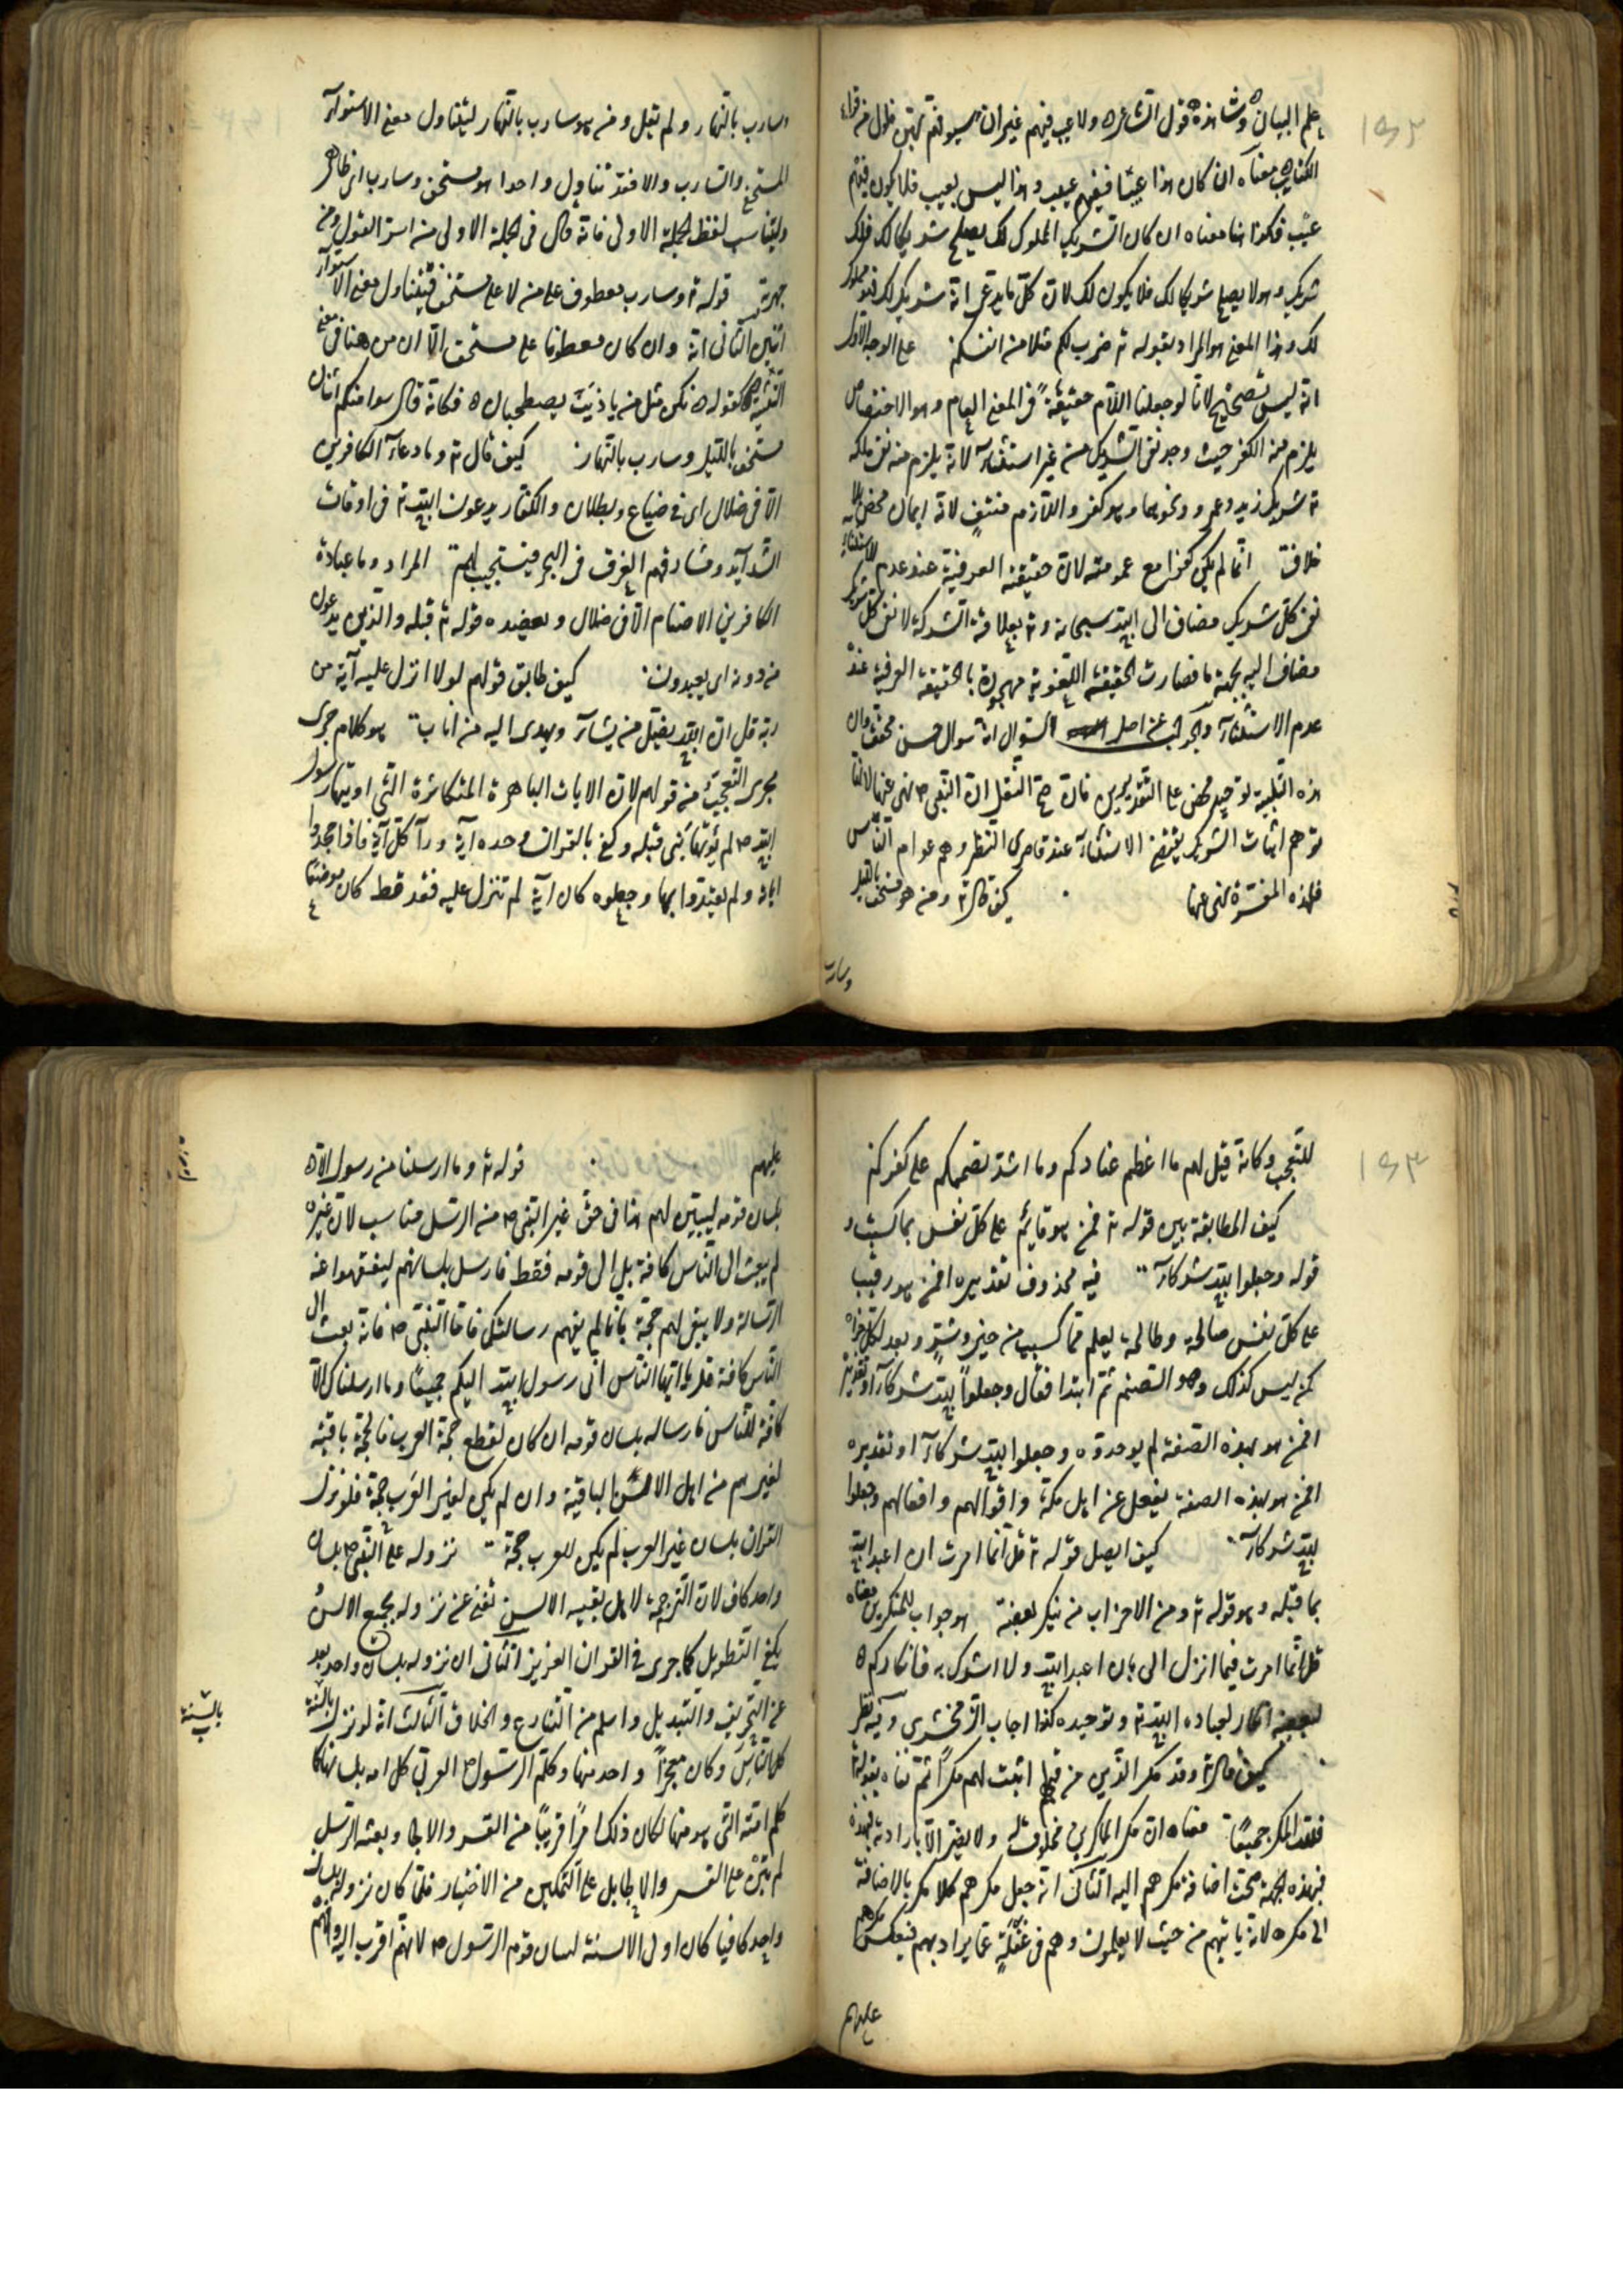 ١٥٢
علم البيان وشاهده قول الشاعر ولا عيب فيهم غير ان سيوفهم بهن فلول من قراع
الكتائب معناه ان كان هذا عيبا ففيهم عيب وهذا ليس بعيب فلا يكون فيهم
عيب فكذا هنا معناه ان كان الشريك المملوك لك يصلح شريكا لك فلك
شريك وهو لا يصلح شريكا لك فلا يكون لك لان كل ما يدعى انه شريك لك فهو مملوك
لك وهذا المعنى هو المراد بقوله تع ضرب لكم مثلا من انفسكم على الوجه الاول
انه ليس بصحيح لانا لو جعلنا اللام حقيقة في المعنى العام وهو الاختصاص
يلزم منه الكفر حيث وجد نفى الشريك من غير استثناء لانه يلزم منه نفى ملكه
تع شريك زيد وعمرو ونحوهما وهو كفر واللازم منتف لانه ايمان محض بلا
خلاف انما لم يكن كفرا مع عمومه لان حقيقته العرفية عند عدم الاستثناء
نفى كل شريك مضاف الى الله سبحانه وتع بعلاقة الشركة لا نفى كل شريك
مضاف اليه بجهة ما فصارت الحقيقة اللغوية مهجورة بالحقيقة العرفية عند
عدم الاستثناء والجواب عن اصل السؤال انه سؤال حسن محقق وان
هذه التلبية توحيد محض على التقديرين فان صح النقل ان النبى ص نهى عنها لانها
توهم اثبات الشريك بمقتضى الاستثناء عند قاصرى النظر وهم عوام الناس
فلهذه المفسدة نهى عنها كيف قال تع ومن هو مستخف بالليل
وسارب
وسارب بالنهار ولم يقل ومن هو سارب بالنهار ليتناول معنى الاستواء
المستخفى والسارب والا فقد تناول واحدا هو مستخف وسارب اى ظاهر
وليناسب لفظ الجملة الاولى فانه قال فى الجملة الاولى من اسر القول ومن
جهر به قوله تع وسارب معطوف على من لا على مستخف فيتناول معنى الاستواء
اثنين الثانى انه وان كان معطوفا على مستخف الا ان من هنا فى معنى
التثنية كقوله نكن مثل من يا ذئب يصطحبان فكانه قال سواء منكم اثنان
مستخف بالليل وسارب بالنهار كيف قال تع وما دعاء الكافرين
الا فى ضلال اى فى ضياع وبطلان والكفار يدعون الله تع فى اوقات
الشدائد ومشارفتهم الغرق فى البحر فيستجيب لهم المراد وما عبادة
الكافرين الاصنام الا فى ضلال ويعضده قوله تع قبله والذين يدعون
من دونه اى يعبدون كيف طابق قولهم لولا انزل عليه آية من
ربه قل ان الله يضل من يشاء ويهدى اليه من اناب هو كلام جرى
مجرى التعجب من قولهم لان الايات الباهرة المتكاثرة التى اوتيها رسول
الله ص لم يؤتها نبى قبله وكفى بالقران وحده آية وراء كل آية فاذا جحدوا
آياته ولم يعتدوا بها وجعلوه كان آية لم تنزل عليه فقط كان موضعا
١٥٣
للتعجب وكانه قيل لهم ما اعظم عنادكم وما اشد تصميمكم على كفركم
كيف المطابقة بين قوله تع افمن هو قائم على كل نفس بما كسبت و
قوله وجعلوا لله شركاء فيه محذوف تقديره افمن هو رقيب
على كل نفس صالحة وطالحة يعلم ما كسبت من خير وشر ويعد لكل جزاه
كمن ليس كذلك وهو الصنم ثم ابتدا فقال وجعلوا لله شركاء او تقديره
افمن هو بهذه الصفة لم يوحدوه وجعلوا لله شركاء او تقديره
افمن هو بهذه الصفة يغفل عن اهل مكة واقوالهم وافعالهم وجعلوا
لله شركاء كيف اتصل قوله تع قل انما امرت ان اعبد الله
بما قبله وهو قوله تع ومن الاحزاب من ينكر بعضه هو جواب للمنكرين معناه
قل انما امرت فيما انزل الى بان اعبد الله ولا اشرك به فانكاركم
لبعضه انكار لعبادة الله تع وتوحيده كذا اجاب الزمخشرى وفيه نظر
كيف قال تع وقد مكر الذين من قبلهم اثبت لهم مكرا ثم نفاه بقوله
فلله المكر جميعا معناه ان مكر الماكرين مخلوق له ولا يضر الا بارادته
فبهذه الجهة صحت اضافة مكرهم اليه الثانى انه جعل مكرهم كلا مكر بالاضافة
الى مكره لانه ياتيهم من حيث لا يعلمون وهم فى غفلة عما يراد بهم فيعكس مكرهم
عليهم
عليهم قوله تع وما ارسلنا من رسول الا
بلسان قومه ليبين لهم هذا فى حق غير النبى ص من الرسل مناسب لان غيره
لم يبعث الى الناس كافة بل الى قومه فقط فارسل بلسانهم ليفقهوا عنه
الرسالة ولا يبقى لهم حجة بانا لم نفهم رسالتك فاما النبى ص فانه بعث الى
الناس كافة قل يا ايها الناس انى رسول الله اليكم جميعا وما ارسلناك الا
كافة للناس فارساله بلسان قومه ان كان لقطع حجة العرب فالحجة باقية
لغيرهم من اهل الالسن الباقية وان لم يكن لغير العرب حجة فلو نزل
القران بلسان غير العرب لم يكن للعرب حجة نزوله على النبى ص بلسان
واحد كاف لان الترجمة لاهل بقية الالسن تغنى عن نزوله بجميع الالسن
ويكفى التطويل كما جرى فى القران العزيز الثانى ان نزوله بلسان واحد ابعد
عن التحريف والتبديل واسلم من التنازع والخلاف الثالث انه لو نزل بالسنة
كل الناس وكان معجزا فى واحد منها وكلم الرسول العربى كل امة بلسانها كما
كلم امته التى هو منها لكان ذلك امرا قريبا من القسر والالجاء وبعثه الرسل
لم تبن على القسر والالجاء بل على التمكين من الاختيار فلما كان نزوله بلسان
واحد كافيا كان اولى الالسنة لسان قوم الرسول ص لانهم اقرب اليه وافهم
بالسنة